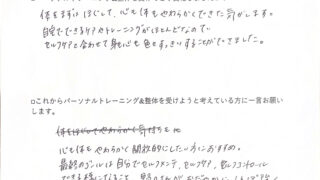 体をまずは ほぐして、心も体もやわらかくできた 気がします。
自宅でできるケアやトレーニングがほとんどなので
セルフケアと合わせて身も心も色々すっきりすることができました。
□これからパーソナルトレーニング&整体を受けようと考えている方に一言お願いします。
心も体もやわらかく 開放的にしたい方におすすめ。
最終のゴールは自分でセルフメンテ、セルフケア、セルフコントロール
できる様になること